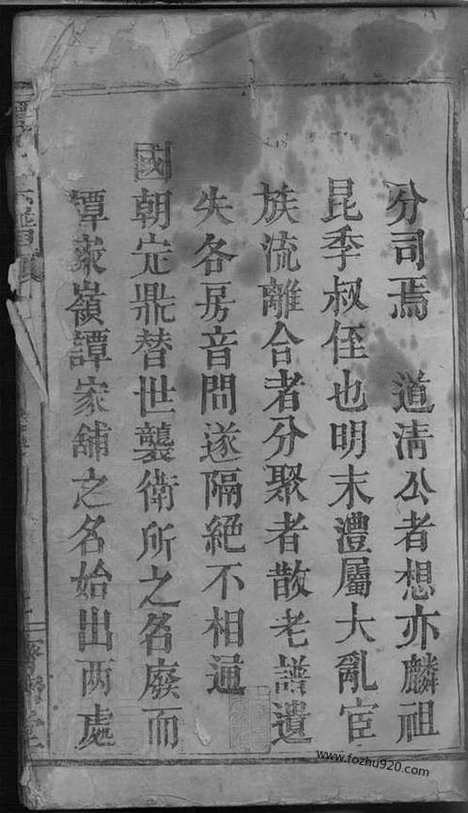 分司焉　道淸公者想亦麟祖
昆季叔侄也明末澧屬大亂宦
族流離合者分聚者散老譜遺
失各房音問遂隔絕不相通
國朝定鼎替世襲衛所之名廢而
譚家嶺譚家舖之名始出兩處
www.fozhu920.com